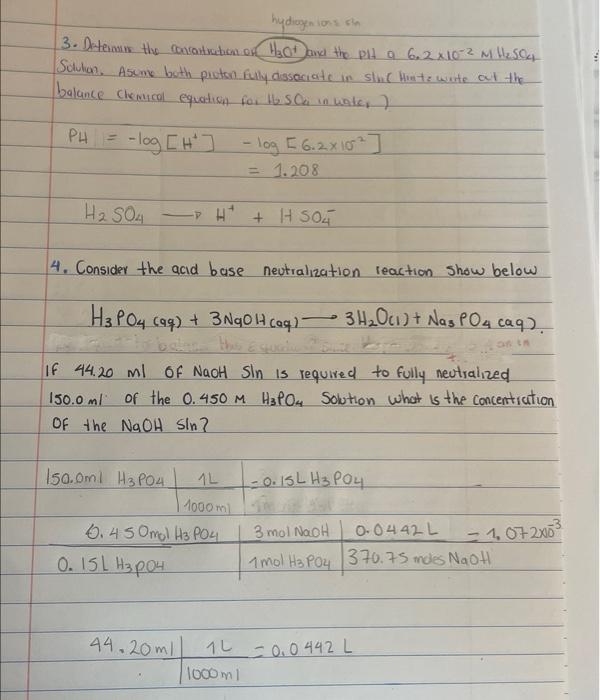 hydrogen ions sln
3. Determine the concentration of H3O+ and the pH a 6.2 x 10-2 M H2SO4
Solution. Asume both proton fully dissociate in sln ( Hint: write out the
balance chemical equation for H2SO4 in water )
PH = -log [H+]   -log [6.2x10-2]
= 1.208
H2SO4 → H+ + HSO4-
4. Consider the acid base neutralization reaction show below
H3PO4 (aq) + 3NaOH (aq) → 3H2O(l) + Na3PO4 (aq).
If 44.20 ml of NaOH Sln is required to fully neutralized
150.0 ml of the 0.450 M H3PO4 Solution what is the concentration
Of the NaOH sln?
150.0ml H3PO4 | 1L = 0.15L H3PO4
1000ml
0.450mol H3PO4 | 3 mol NaOH | 0.0442 L = 1.072x10-3
0.15L H3PO4 | 1mol H3PO4 | 370.75 moles NaOH
44.20ml | 1L = 0.0442 L
1000ml